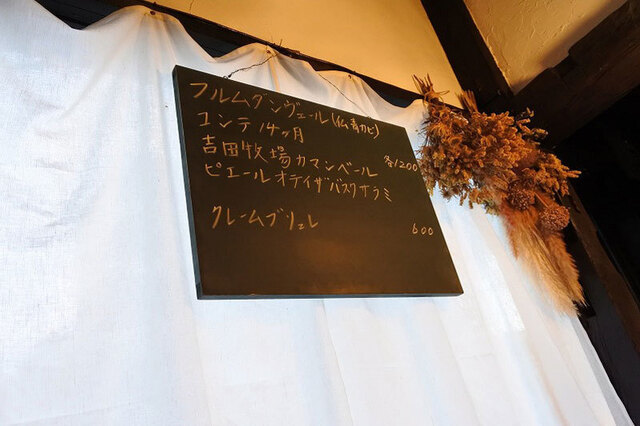 フルムダンヴェール(仏青カビ)
コンテ 14ヶ月
吉田牧場カマンベール 各1200
ピエールオテイザバスクサラミ
クレームブリュレ 600